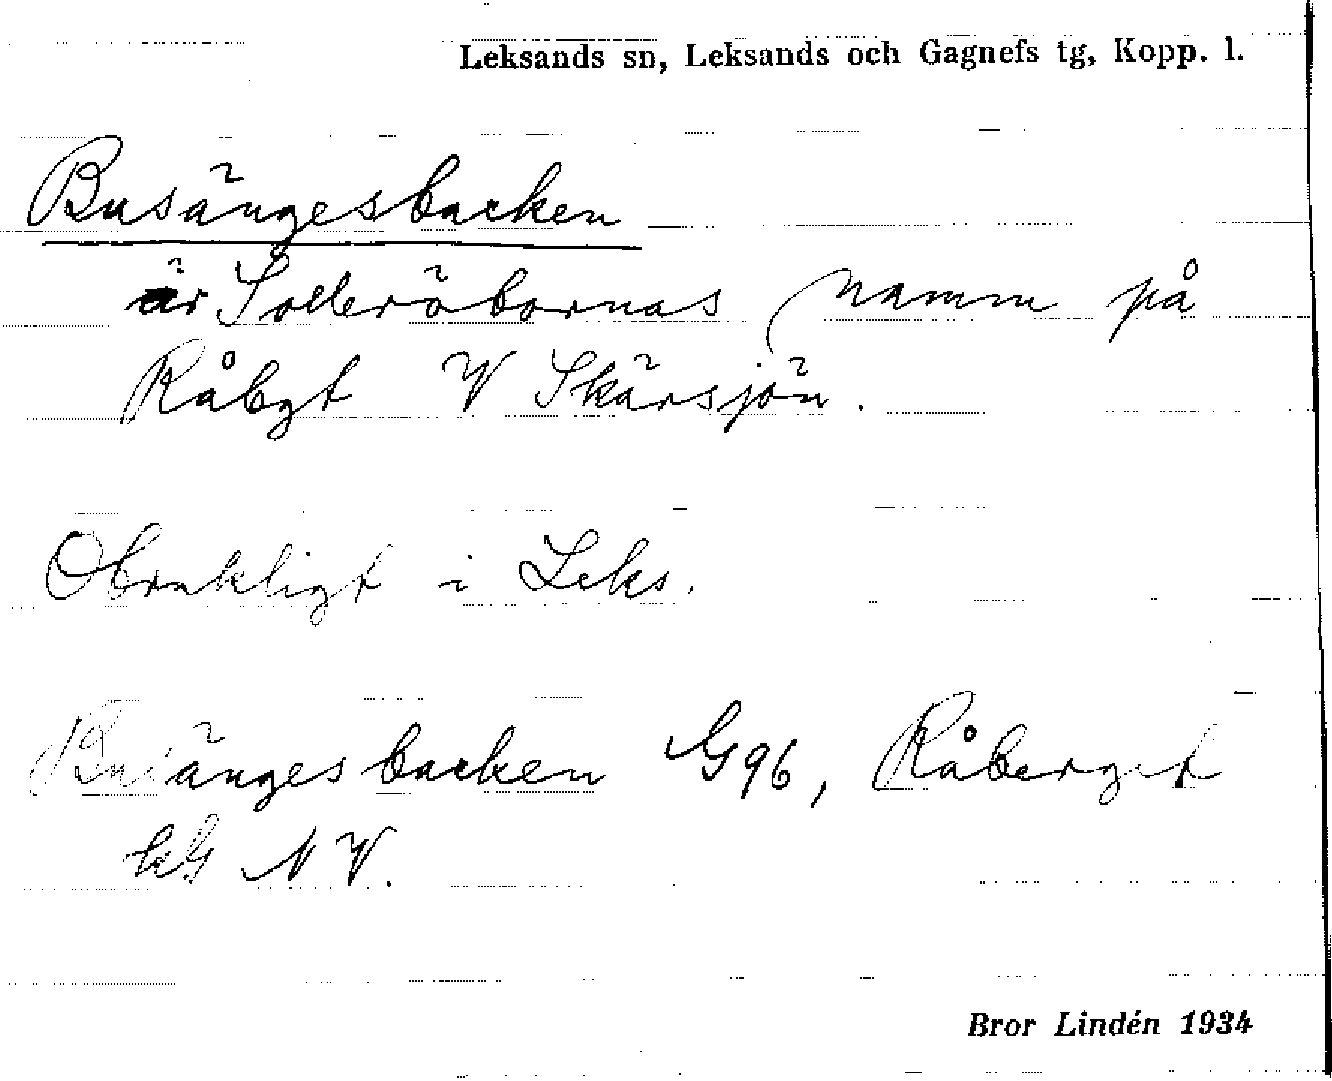 Leksands sn, Leksands och Gagnefs tg, Kopp. l.
Busängesbacken
är Solleröbornas namn på
Råbgt V Skärsjön.
Obrukligt i Leks.
Busängesbacken G96, Råberget
NV.
Bror Lindén 1934